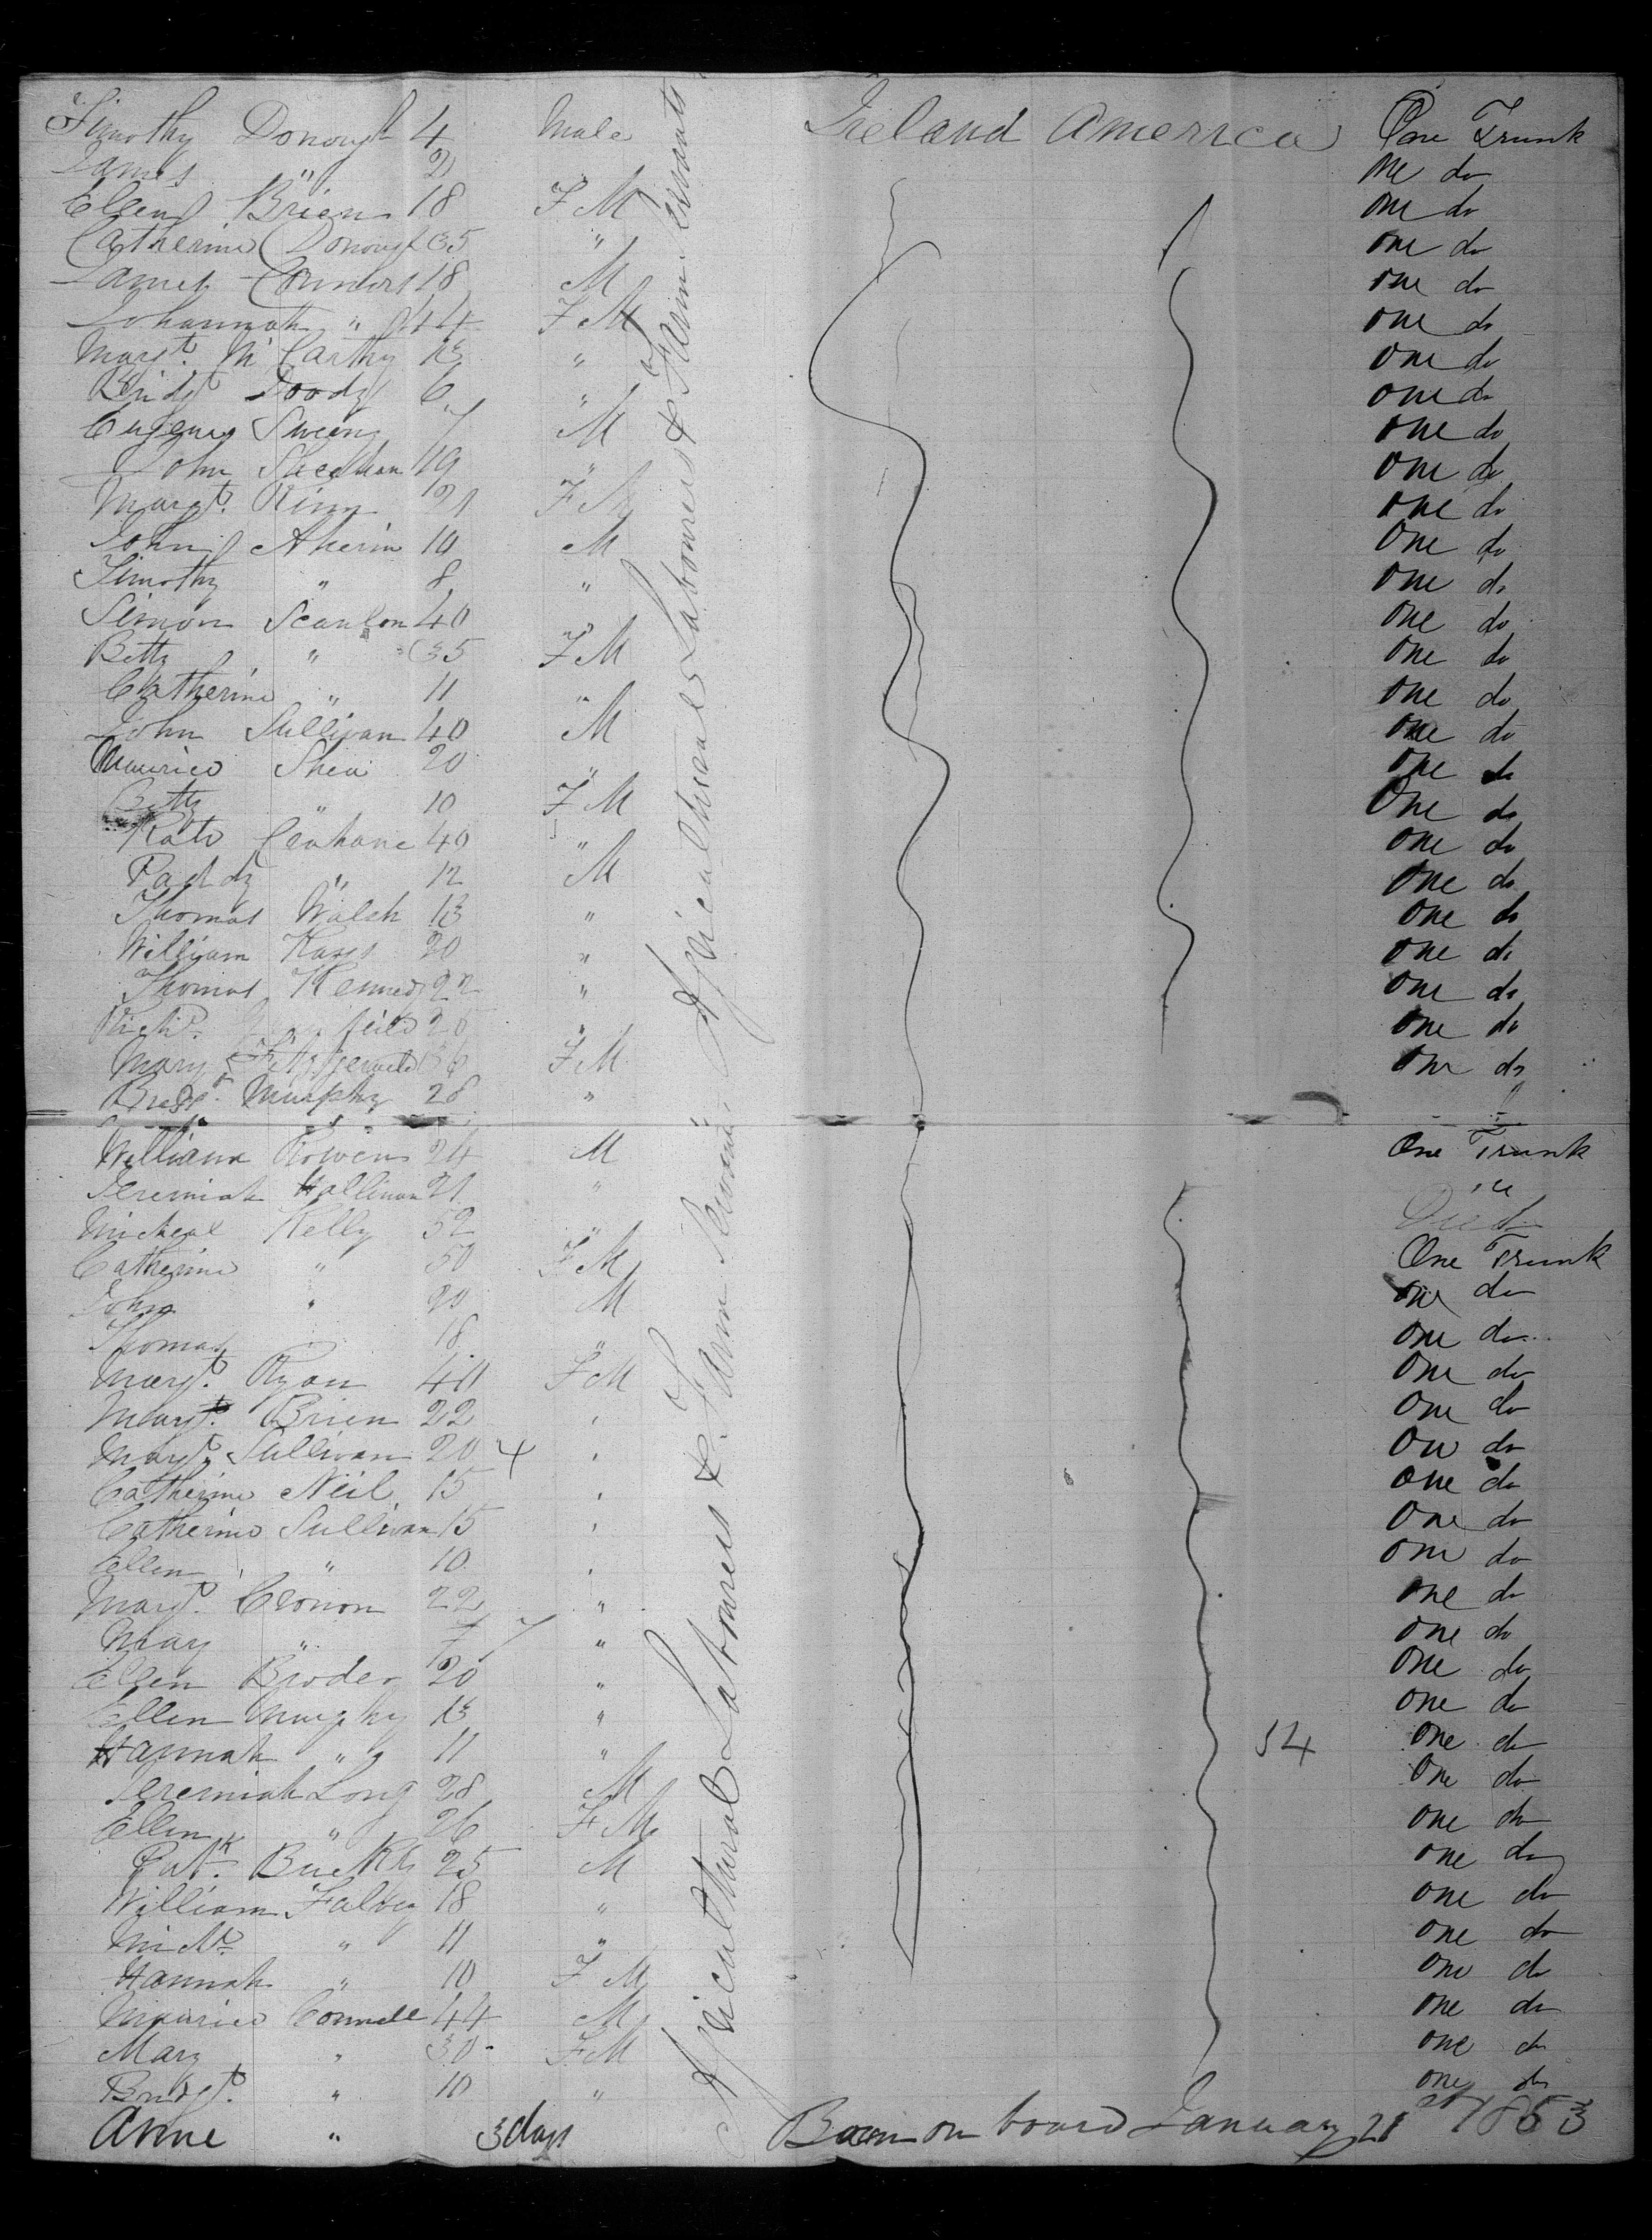 Timothy Donough 4 Male Ireland America One Trunk
James " 2 One do
Ellen Brien 18 F M one do
Catherine Donough 35 " one do
James Connors 18 M one do
Johannah " 14 F M one do
Margt. McCarthy 13 " one do
Bridgt Doody 6 " one do
Eugene Sweeny 7 M one do
John Sheehan 19 " one do
Margt. 21 F M one do
John Aherin 10 M One do
Timothy " 8 " one do
Simon Scanlon 40 " one do
Betty " 35 F M one do
Catherine " 11 " one do
John Sullivan 40 M one do
Maurice Shea 20 " one do
Betty " 10 F M One do
Kate 40 " one do
Paddy " 12 M One do
Thomas Walsh 13 " one do
William 20 " one do
Thomas Kennedy 22 " one do
Richd. 25 " one do
Mary Fitzgerald 36 F M one do
Bridgt. Murphy 28 "
William 24 M One Trunk
Jeremiah Hallinan 21 " "
Micheal Kelly 52 " Died
Catherine " 50 F M One Trunk
John " 20 M one do
Thomas " 18 " one do
Margt. Ryan 40 F M One do
Margt. Brien 22 " One do
Margt. Sullivan 20 " One do
Catherine Neil 15 " One do
Catherine Sullivan 15 " One do
Ellen " 10 " one do
Margt. Cronon 22 " one do
Mary " 7 7 " one do
Ellen Broder 20 " One do
Ellen Murphy 13 " one do
Hannah " 11 " 54 one do
Jeremiah Long 28 M One do
Ellen " 26 F M one do
Patk. Buckly 25 M one do
William Falvey 18 " one do
Michl. " 11 " one do
Hannah " 10 F M one do
Maurice Connell 44 M one do
Mary " 30 F M one do
Bridgt. " 10 " one do
Anne " 3 days Born on board January 21st 1853
Agricultural Labourers & Farm Servants
Agricultural Labourers & Farm Servants